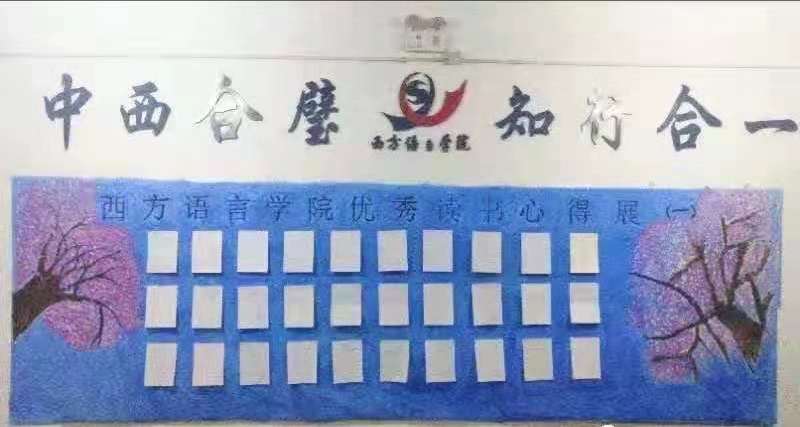 中西合璧 知行合一
西方语言学院
西方语言学院优秀读书心得展(一)